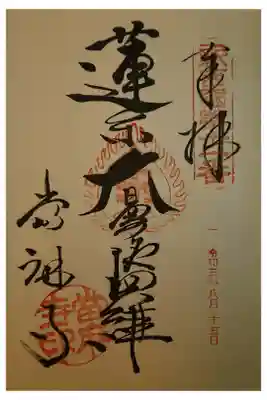 奉拝
令和三年八月十五日
蓮糸大曼陀羅
當麻寺